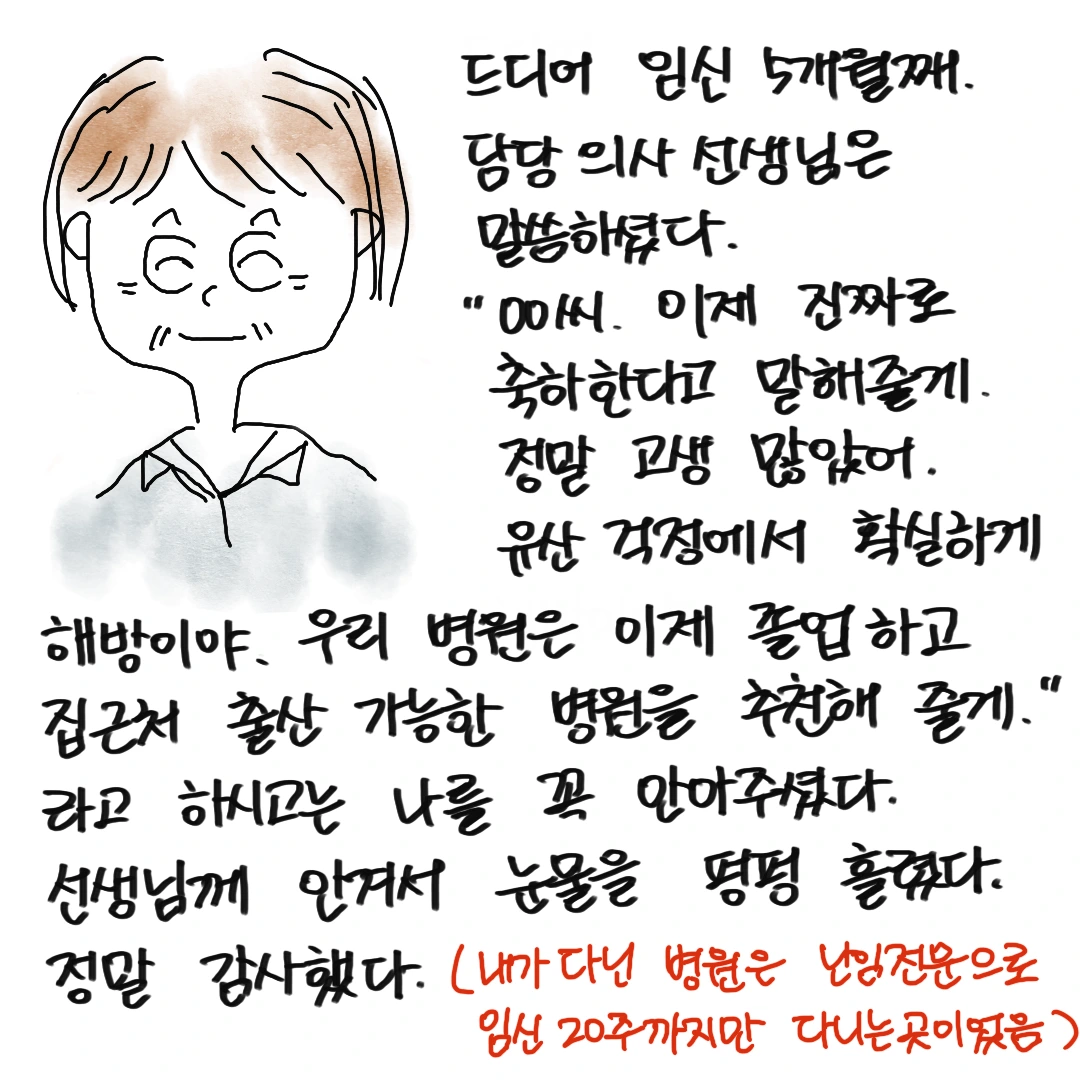 드디어 임신 5개월째.
담당 의사 선생님은
말씀하셨다.
"OO씨. 이제 진짜로
축하한다고 말해줄게.
정말 고생 많았어.
유산 걱정에서 확실하게
해방이야. 우리 병원은 이제 졸업하고
집근처 출산 가능한 병원을 추천해 줄게."
라고 하시고는 나를 꼭 안아주셨다.
선생님께 안겨서 눈물을 펑펑 흘렸다.
정말 감사했다. (내가 다닌 병원은 난임전문으로
임신 20주까지만 다니는곳이었음)